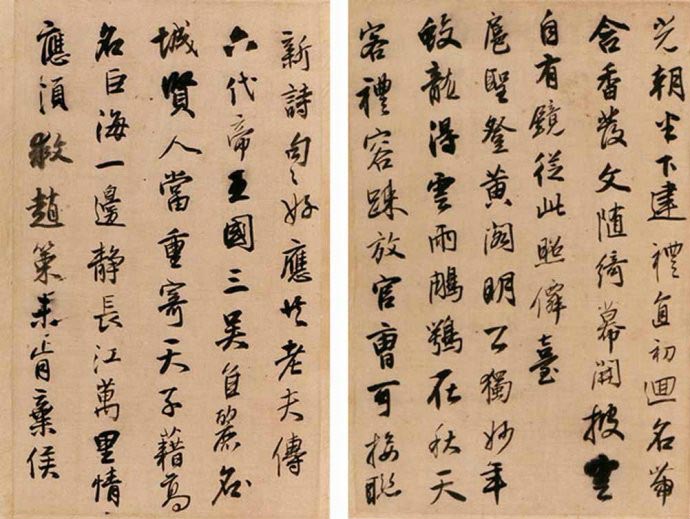 光朝半下建禮直初迴名帶
含香發文隨綺幕開披雲
自有鏡從此照僚臺
扈聖登黃閣明公獨妙年
蛟龍得雲雨鵰鶚在秋天
客禮容踈放官曹可接聯
新詩句〻好應共老夫傳
六代帝王國三吳自麗名
城賢人當重寄天子藉高
名巨海一邊靜長江萬里情
應須救趙策未肯棄侯